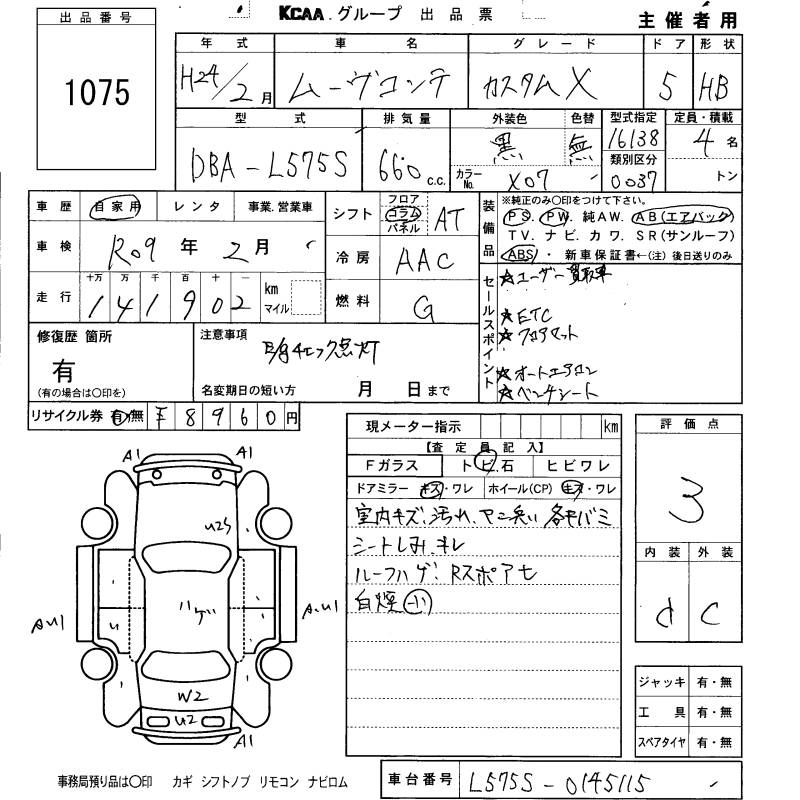 KCAA.グループ 出品票
主催者用
出品番号
1075
年式 車名 グレード ドア 形状
H24/2月 ムーヴコンテ カスタムX 5 HB
型式 排気量 外装色 色替 型式指定 定員・積載
DBA-L575S 660 c.c. 黒 無 16138 4名
カラーNo. X07 類別区分 0037 トン
車歴 自家用 レンタ 事業.営業車
シフト フロア コラム パネル AT
車検 R09年2月
冷房 AAC
走行 十万 万 千 百 十 一 km マイル
141902
燃料 G
装備品 ※純正のみ〇印をつけて下さい。
PS. PW. 純AW. AB(エアバック)
TV. ナビ. カワ. SR(サンルーフ)
ABS・新車保証書←(注)後日送りのみ
セールスポイント
☆ユーザー買取車
☆ETC
☆フロアマット
☆オートエアコン
☆ベンチシート
修復歴 箇所
有
(有の場合は〇印を)
注意事項
E/gチェック点灯
名変期日の短い方 月 日まで
リサイクル券 有・無 ¥8960円
現メーター指示 km
【査定員記入】
Fガラス トビ.石 ヒビワレ
ドアミラー キズ・ワレ ホイール(CP) キズ・ワレ
室内キズ、汚れ、ヤニ臭い 各キバミ
シートしみ、キレ
ルーフハゲ、Rスポアセ
白煙 小
評価点
3
内装 外装
d C
A1 A1
U25
A.U1 U ハゲ A.U1
W2
U2
A1
ジャッキ 有・無
工具 有・無
スペアタイヤ 有・無
事務局預り品は〇印 カギ シフトノブ リモコン ナビロム
車台番号 L575S-0145115